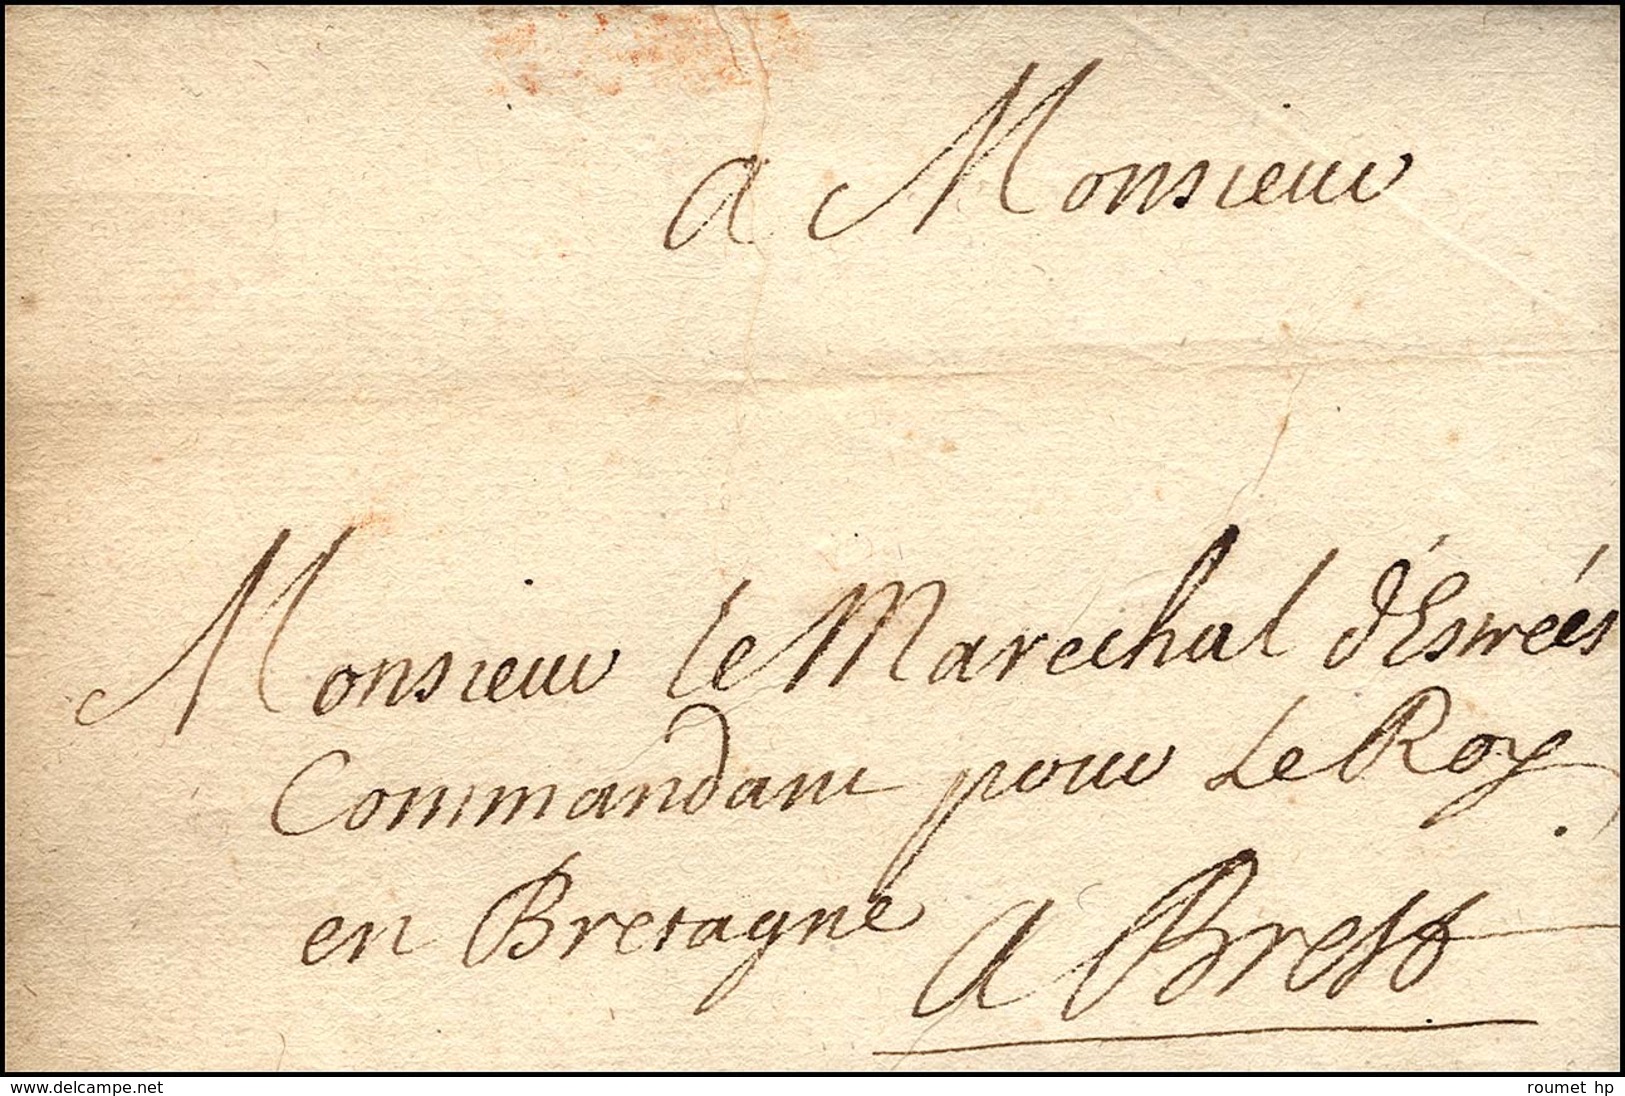 a Monsieur
Monsieur le Marechal d'Estrées
Commandant pour Le Roy
en Bretagne
a Brest
www.delcampe.net
roumet hp